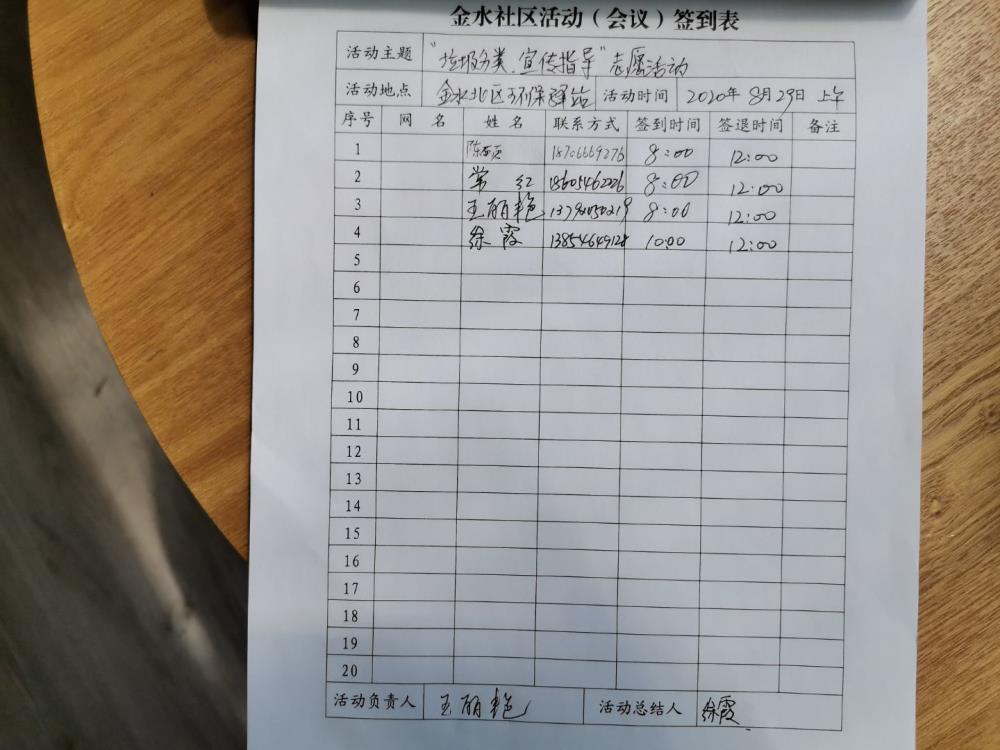 金水社区活动（会议）签到表
活动主题 "垃圾分类、宣传指导"志愿活动
活动地点 金水北区环保驿站 活动时间 2020年8月29日 上午
序号 网 名 姓 名 联系方式 签到时间 签退时间 备注
1 18706669276 8:00 12:00
2 常 红 18605462226 8:00 12:00
3 王丽艳 8:00 12:00
4 徐 霞 13854649128 10:00 12:00
5
6
7
8
9
10
11
12
13
14
15
16
17
18
19
20
活动负责人 王丽艳 活动总结人 徐霞